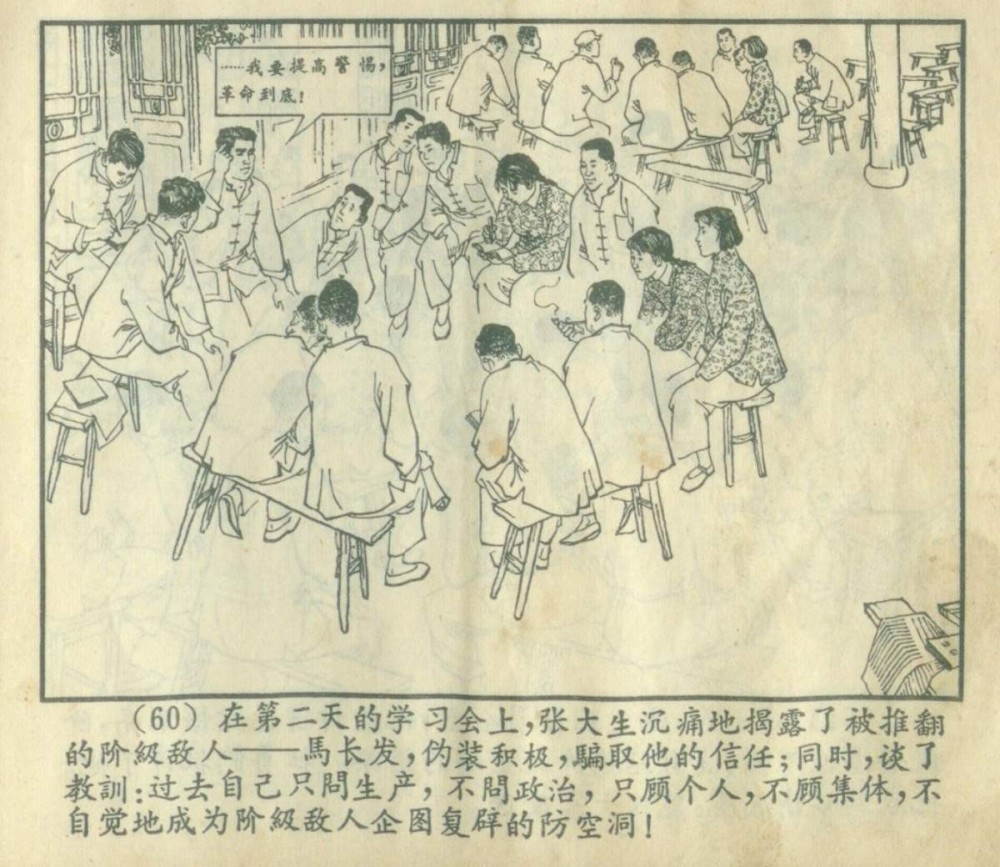 ……我要提高警惕，
革命到底！
（60）在第二天的学习会上，张大生沉痛地揭露了被推翻
的阶級敌人——馬长发，伪装积极，騙取他的信任；同时，谈了
教訓：过去自己只問生产，不問政治，只顾个人，不顾集体，不
自觉地成为阶級敌人企图复辟的防空洞！